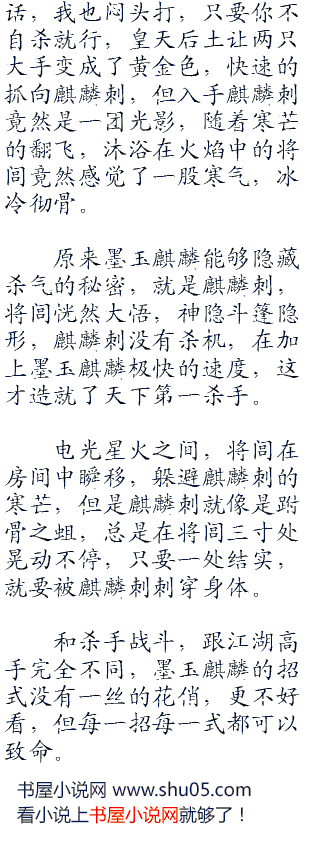 话，我也闷头打，只要你不
自杀就行，皇天后土让两只
大手变成了黄金色，快速的
抓向麒麟刺，但入手麒麟刺
竟然是一团光影，随着寒芒
的翻飞，沐浴在火焰中的将
闾竟然感觉了一股寒气，冰
冷彻骨。
原来墨玉麒麟能够隐藏
杀气的秘密，就是麒麟刺，
将闾恍然大悟，神隐斗篷隐
形，麒麟刺没有杀机，在加
上墨玉麒麟极快的速度，这
才造就了天下第一杀手。
电光星火之间，将闾在
房间中瞬移，躲避麒麟刺的
寒芒，但是麒麟刺就像是跗
骨之蛆，总是在将闾三寸处
晃动不停，只要一处结实，
就要被麒麟刺刺穿身体。
和杀手战斗，跟江湖高
手完全不同，墨玉麒麟的招
式没有一丝的花俏，更不好
看，但每一招每一式都可以
致命。
书屋小说网 www.shu05.com
看小说上书屋小说网就够了！